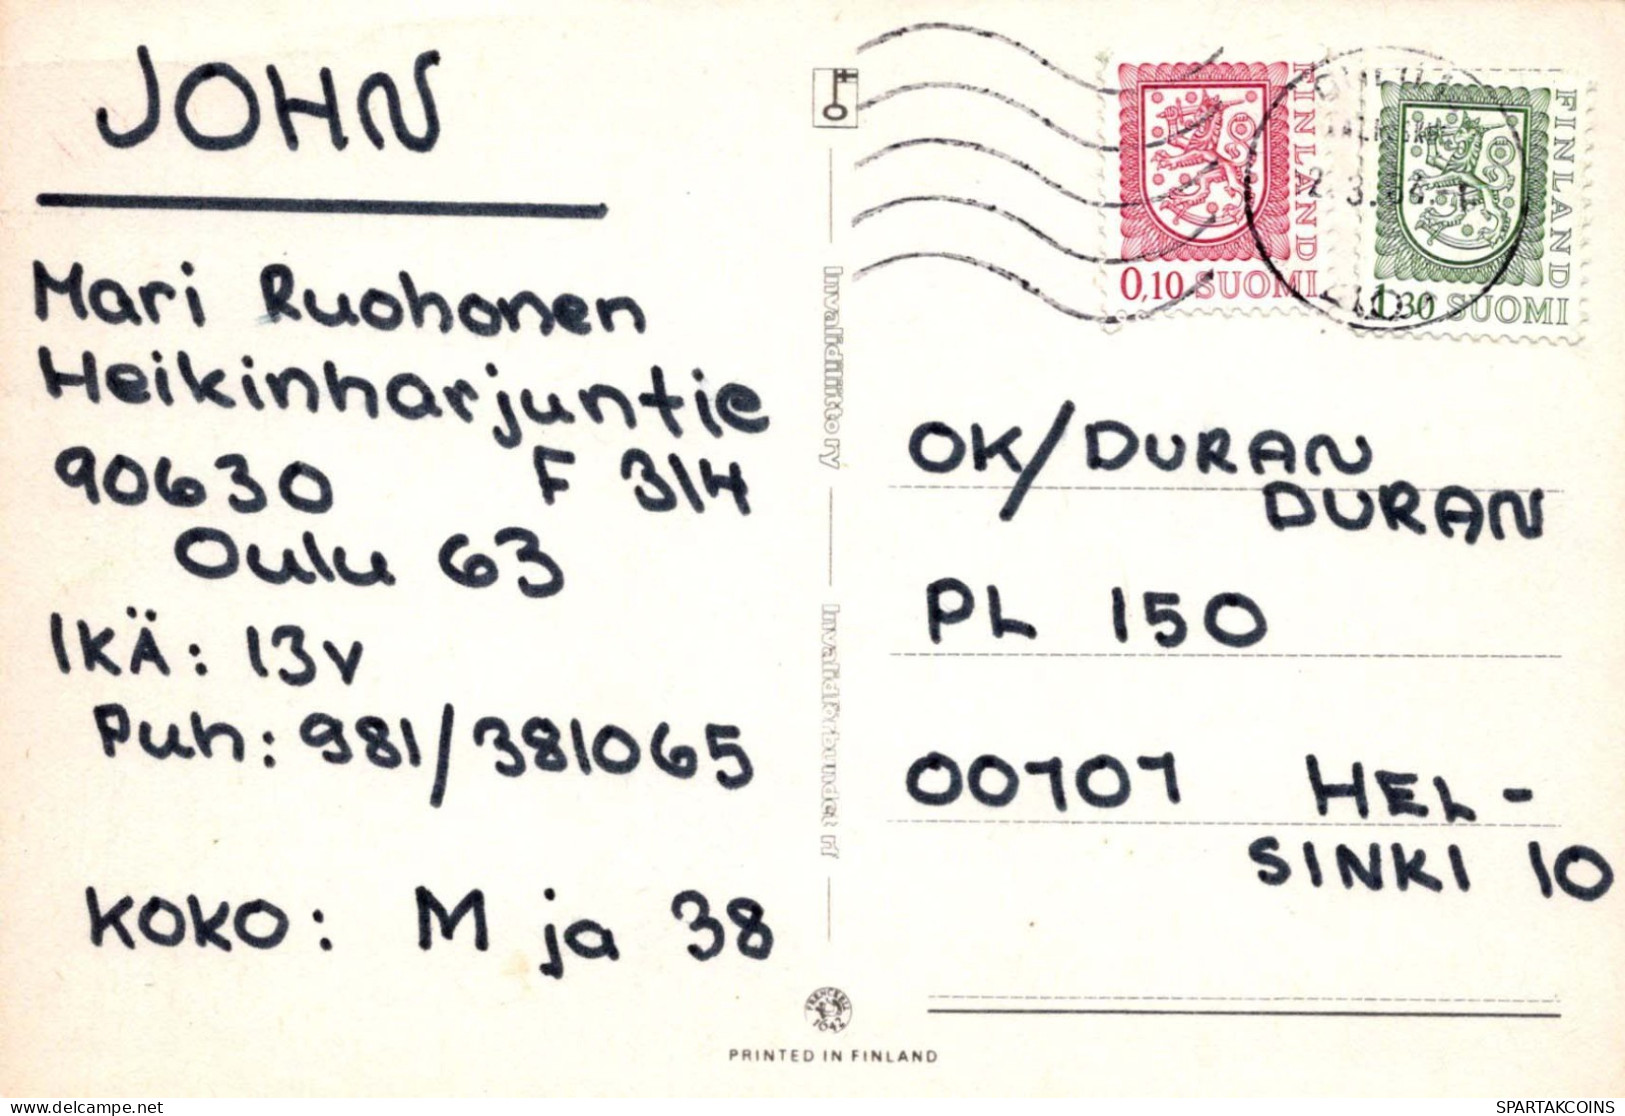 JOHN
Mari Ruohonen
Heikinharjuntie
90630 F 314
Oulu 63
IKÄ: 13v
Puh: 981/381065
KOKO: M ja 38
Invalidiliitto ry
Invalidförbundet rf
FINLAND
0,10 SUOMI
FINLAND
1,30 SUOMI
OK/DURAN
DURAN
PL 150
00101 HEL-
SINKI 10
1642
PRINTED IN FINLAND
www.delcampe.net
SPARTAKCOINS